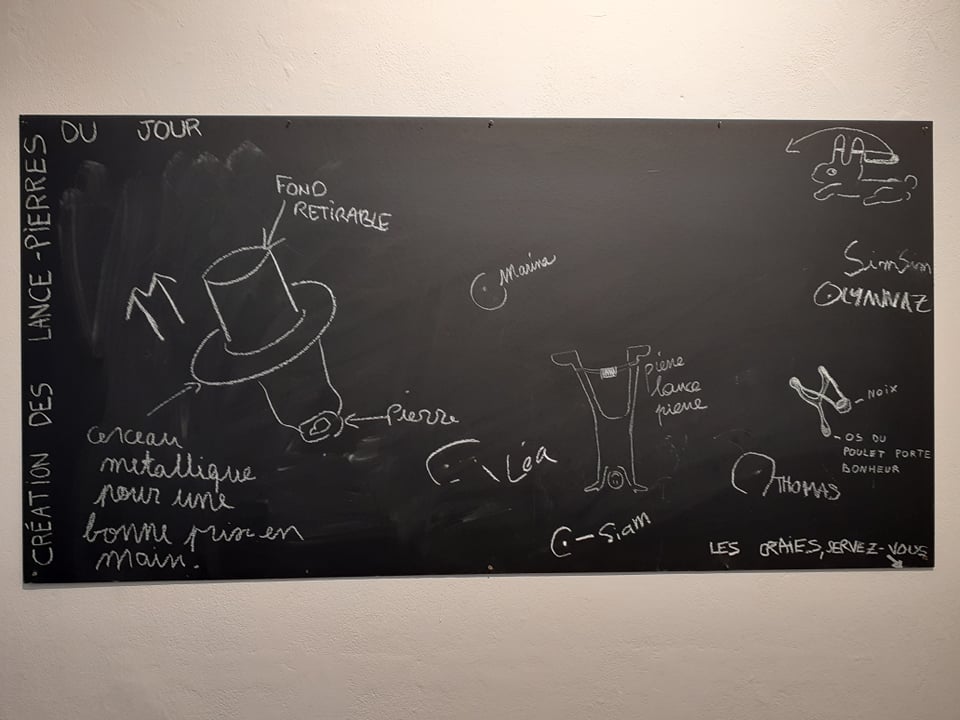 CRÉATION DES LANCE-PIERRES
DU JOUR
FOND
RETIRABLE
Pierre
cerceau
metallique
pour une
bonne prise en
main.
Marine
Léa
pierre
lance
pierre
Siam
SimSim
NOIX
OS DU
POULET PORTE
BONHEUR
THOMAS
LES CRAIES, SERVEZ-VOUS